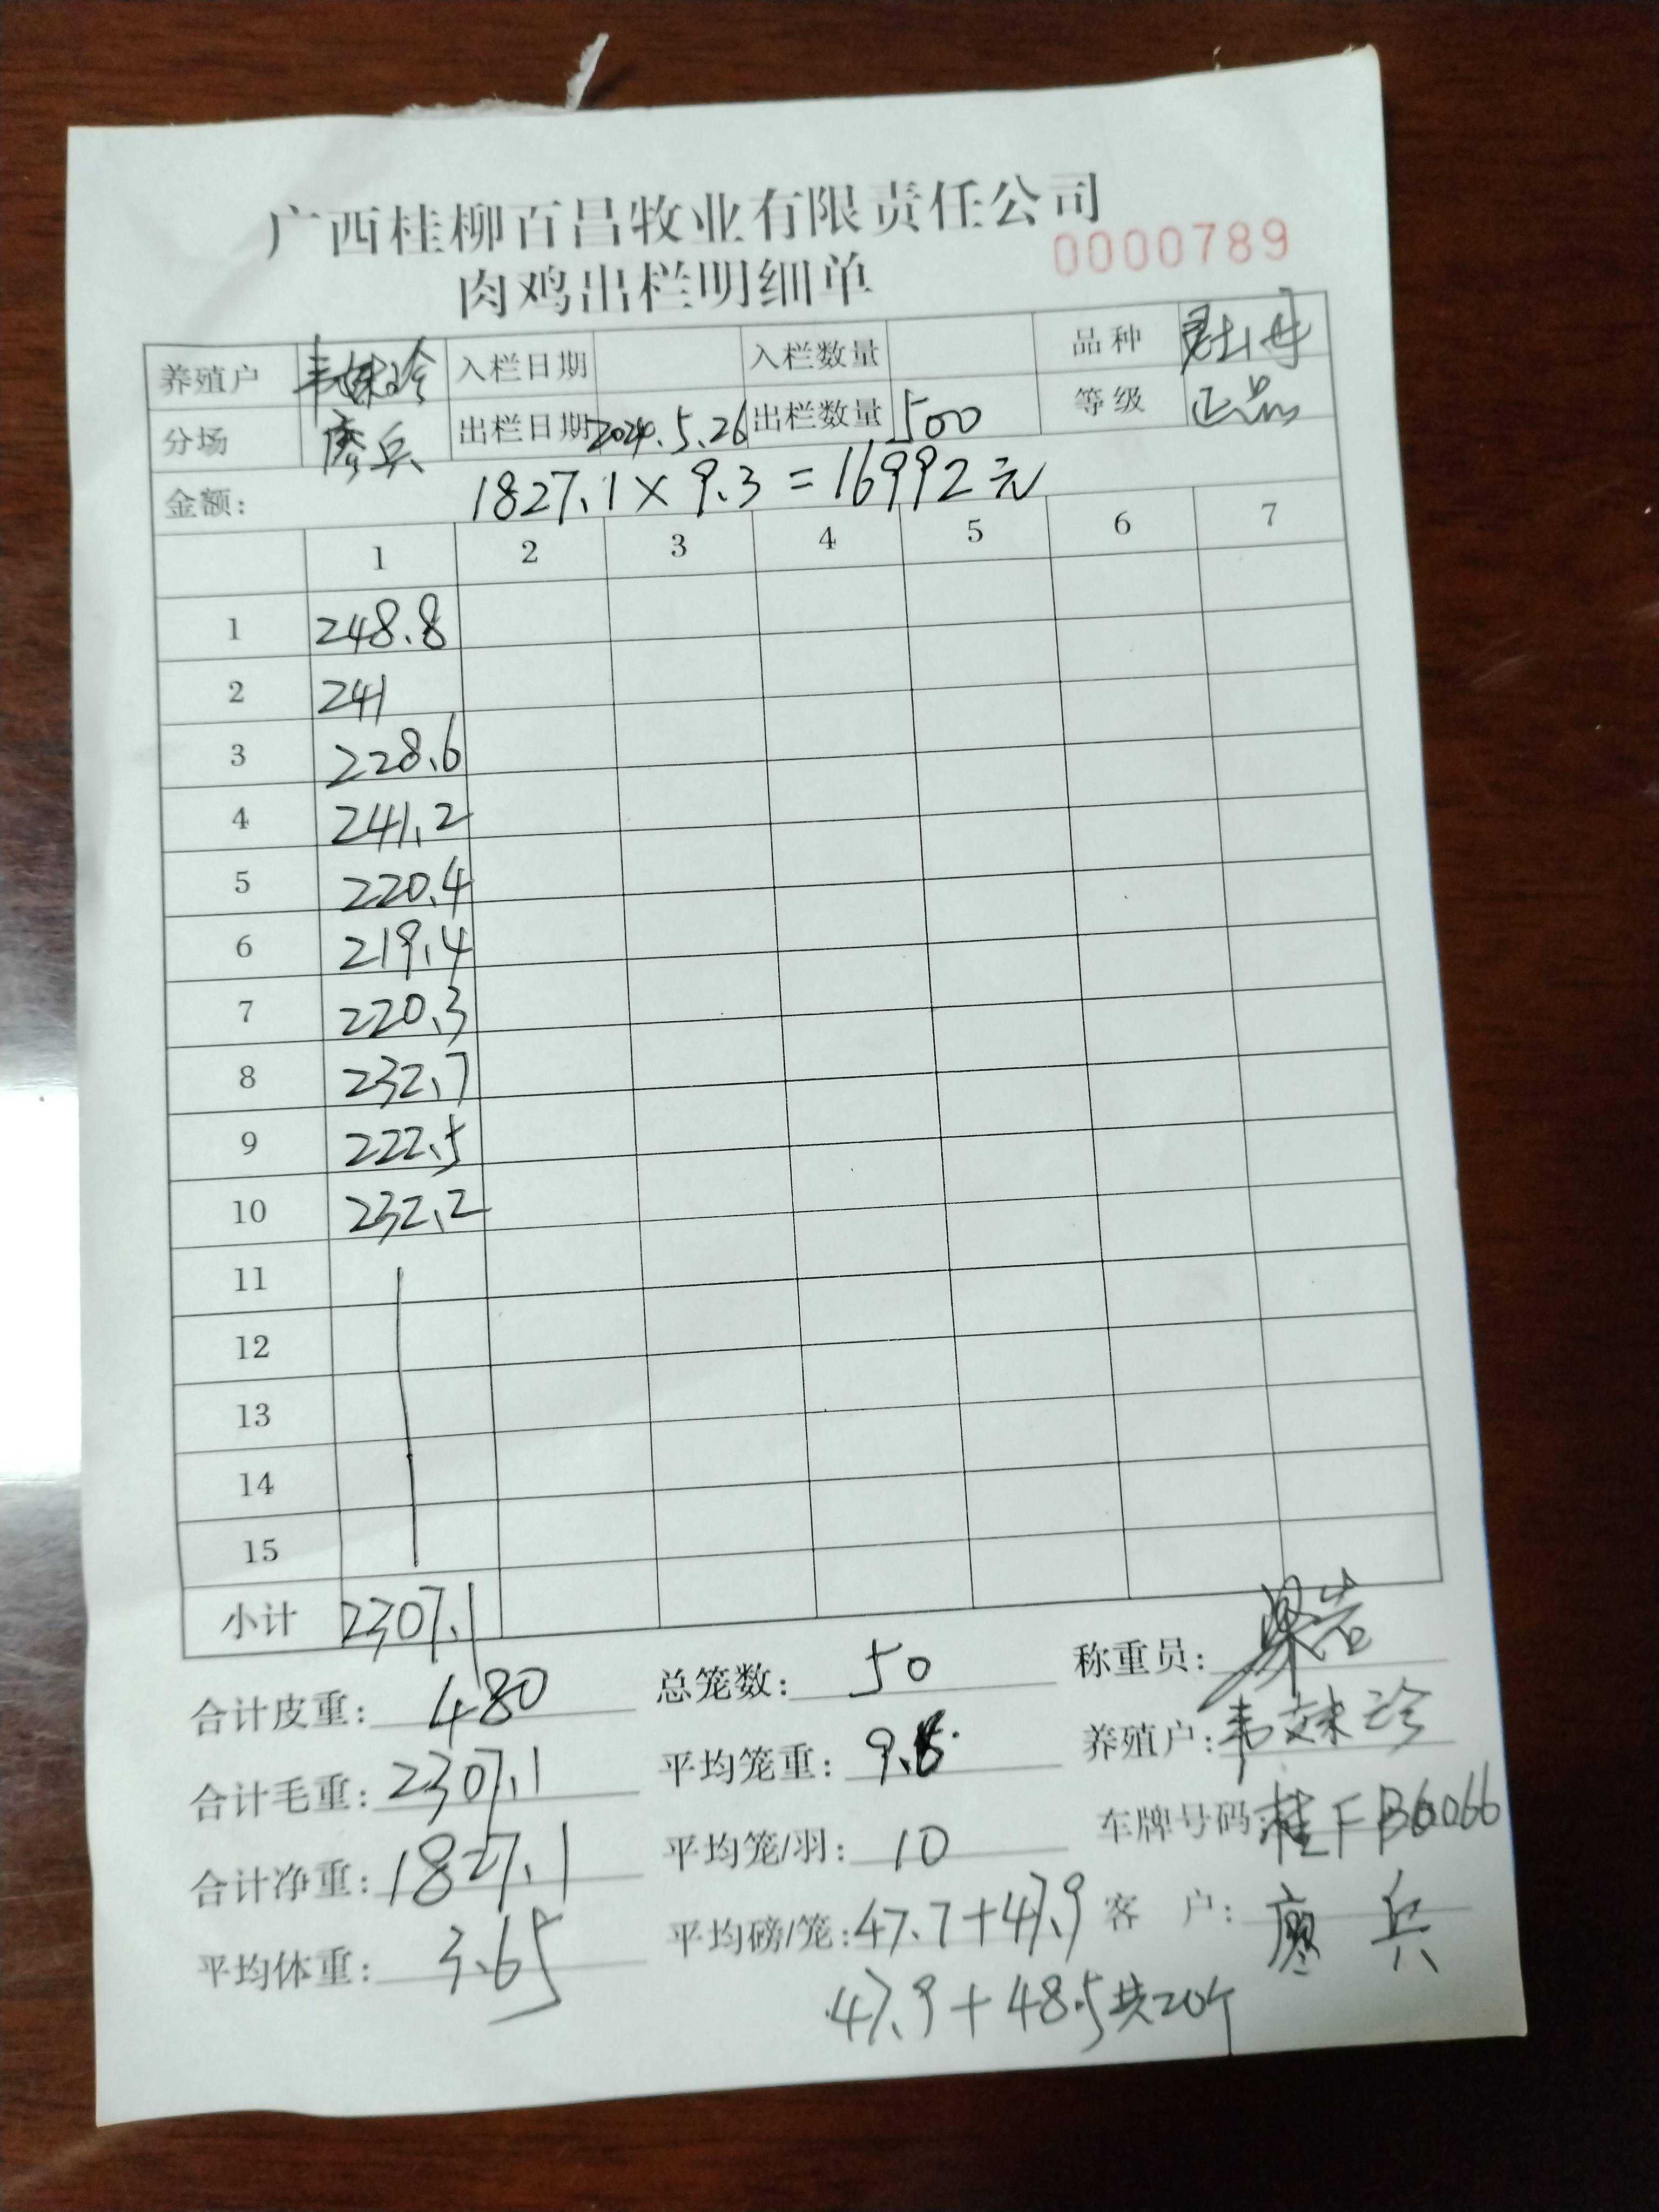 广西桂柳百昌牧业有限责任公司
0000789
肉鸡出栏明细单
养殖户 韦妹珍 入栏日期 入栏数量 品种
分场 廖兵 出栏日期 2024.5.26 出栏数量 500 等级 正品
金额: 1827.1×9.3=16992元
1 2 3 4 5 6 7
1 248.8
2 241
3 228.6
4 241.2
5 220.4
6 219.4
7 220.3
8 232.7
9 222.5
10 232.2
11
12
13
14
15
小计 2307.1
合计皮重: 480 总笼数: 50 称重员:
合计毛重: 2307.1 平均笼重: 9.6 养殖户: 韦妹珍
合计净重: 1827.1 平均笼/羽: 10 车牌号码: 桂FB6066
平均体重: 3.65 平均磅/笼: 47.7+47.9 客户: 廖兵
47.9+48.5共20个